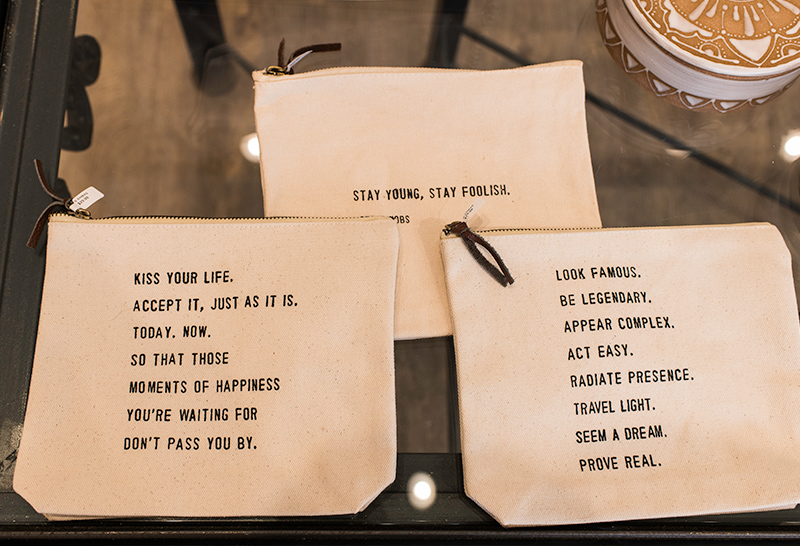 STAY YOUNG, STAY FOOLISH.
KISS YOUR LIFE.
ACCEPT IT, JUST AS IT IS.
TODAY. NOW.
SO THAT THOSE
MOMENTS OF HAPPINESS
YOU'RE WAITING FOR
DON'T PASS YOU BY.
LOOK FAMOUS.
BE LEGENDARY.
APPEAR COMPLEX.
ACT EASY.
RADIATE PRESENCE.
TRAVEL LIGHT.
SEEM A DREAM.
PROVE REAL.